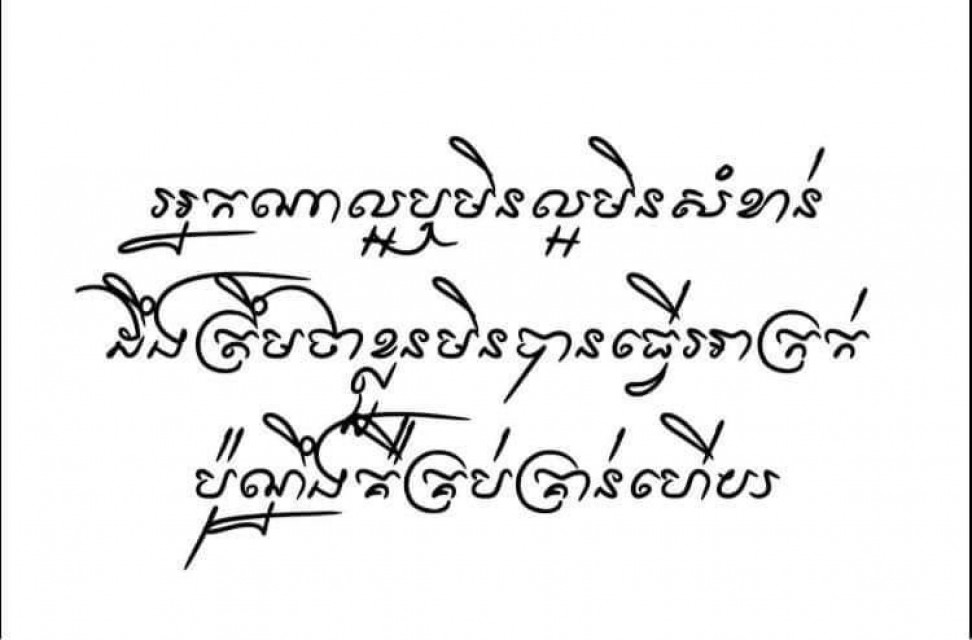 អ្នកណាល្អឬមិនល្អមិនសំខាន់
ដឹងត្រឹមថាខ្លួនមិនបានធ្វើអាក្រក់
ប៉ុណ្ណឹងគឺគ្រប់គ្រាន់ហើយ